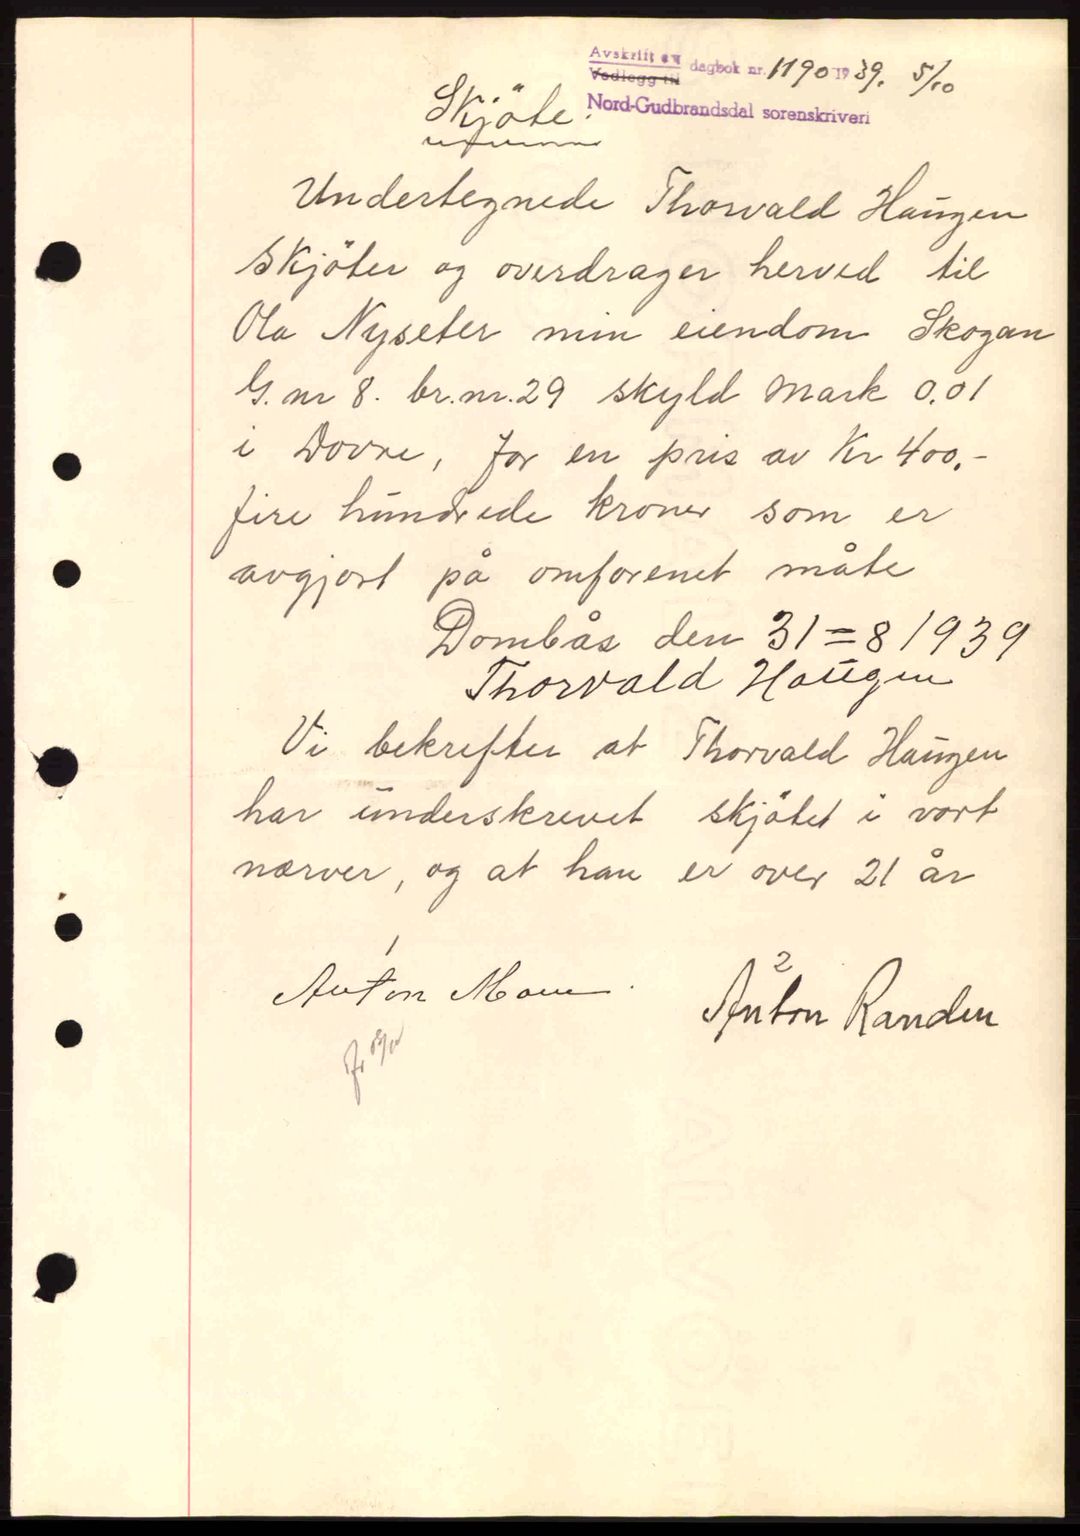 Avskrift av
Vedlegg til dagbok nr. 1190 1939. 5/10
Nord-Gudbrandsdal sorenskriveri
Skjöte.
Undertegnede Thorvald Haugen
skjöter og overdrager herved til
Ola Nyseter min eiendom Skogan
G.nr 8. br.nr. 29 skyld mark 0.01
i Dovre, for en pris av Kr 400,-
fire hundrede kroner som er
avgjort på omforenet måte
Dombås den 31=8 1939
Thorvald Haugen
Vi bekrefter at Thorvald Haugen
har underskrevet skjötet i vort
nærver, og at han er over 21 år
1
Anton
2
Anton Randen